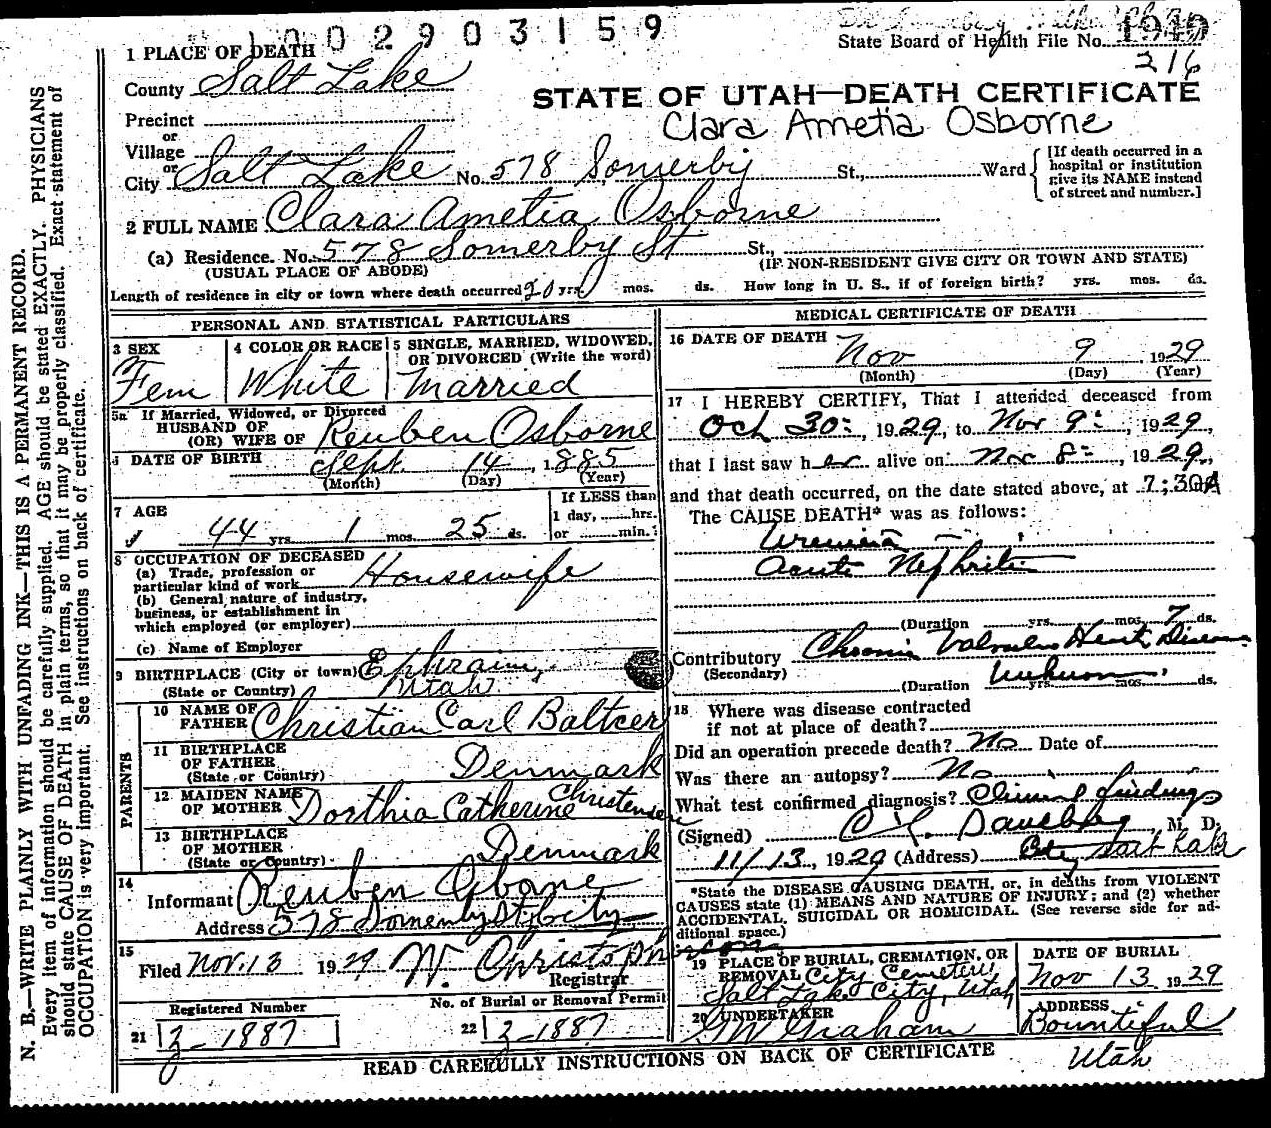 1 0 0 2 9 0 3 1 5 9
State Board of Health File No. 1949
216
1 PLACE OF DEATH
County Salt Lake
STATE OF UTAH—DEATH CERTIFICATE
Clara Ametia Osborne
Precinct
or
Village
or
City Salt Lake No. 578 Somerby St., Ward
[If death occurred in a hospital or institution give its NAME instead of street and number.]
2 FULL NAME Clara Ametia Osborne
(a) Residence. No. 578 Somerby St St.,
(USUAL PLACE OF ABODE) (IF NON-RESIDENT GIVE CITY OR TOWN AND STATE)
Length of residence in city or town where death occurred 20 yrs. mos. ds. How long in U. S., if of foreign birth? yrs. mos. ds.
PERSONAL AND STATISTICAL PARTICULARS
3 SEX
Fem
4 COLOR OR RACE
White
5 SINGLE, MARRIED, WIDOWED, OR DIVORCED (Write the word)
Married
5a If Married, Widowed, or Divorced
HUSBAND OF
(OR) WIFE OF Reuben Osborne
DATE OF BIRTH Sept 14, 1885
(Month) (Day) (Year)
7 AGE
44 yrs. 1 mos. 25 ds.
If LESS than
1 day, hrs.
or min.
8 OCCUPATION OF DECEASED
(a) Trade, profession or
particular kind of work Housewife
(b) General nature of industry,
business, or establishment in
which employed (or employer)
(c) Name of Employer
9 BIRTHPLACE (City or town) Ephraim,
(State or Country) Utah
PARENTS
10 NAME OF
FATHER Christian Carl Baltcer
11 BIRTHPLACE
OF FATHER
(State or Country) Denmark
12 MAIDEN NAME
OF MOTHER Dorthia Catherine Christensen
13 BIRTHPLACE
OF MOTHER
(State or Country) Denmark
14
Informant Reuben Osborne
Address 578 Somerby St, City
15
Filed Nov. 13 1929 W. Christopherson
Registrar
Registered Number
21 Z-1887
No. of Burial or Removal Permit
22 Z-1887
MEDICAL CERTIFICATE OF DEATH
16 DATE OF DEATH
Nov 9 1929
(Month) (Day) (Year)
17 I HEREBY CERTIFY, That I attended deceased from
Oct 30, 1929, to Nov 9, 1929,
that I last saw her alive on Nov 8, 1929,
and that death occurred, on the date stated above, at 7:30A
The CAUSE DEATH* was as follows:
Uremia
Acute Nephritis
(Duration yrs. mos. 7 ds.
Contributory Chronic Valvular Heart Disease
(Secondary)
(Duration Unknown yrs. mos. ds.
18 Where was disease contracted
if not at place of death?
Did an operation precede death? No Date of
Was there an autopsy? No
What test confirmed diagnosis? Clinical findings
(Signed) M. D.
11/13, 1929 (Address) Salt Lake
*State the DISEASE CAUSING DEATH, or, in deaths from VIOLENT
CAUSES state (1) MEANS AND NATURE OF INJURY; and (2) whether
ACCIDENTAL, SUICIDAL OR HOMICIDAL. (See reverse side for ad-
ditional space.)
19 PLACE OF BURIAL, CREMATION, OR
REMOVAL City Cemetery
Salt Lake City, Utah
DATE OF BURIAL
Nov 13 1929
20 UNDERTAKER
G M Graham
ADDRESS
Bountiful
Utah
READ CAREFULLY INSTRUCTIONS ON BACK OF CERTIFICATE
N. B.—WRITE PLAINLY WITH UNFADING INK—THIS IS A PERMANENT RECORD.
Every item of information should be carefully supplied. AGE should be stated EXACTLY. PHYSICIANS
should state CAUSE OF DEATH in plain terms, so that it may be properly classified. Exact statement of
OCCUPATION is very important. See instructions on back of certificate.